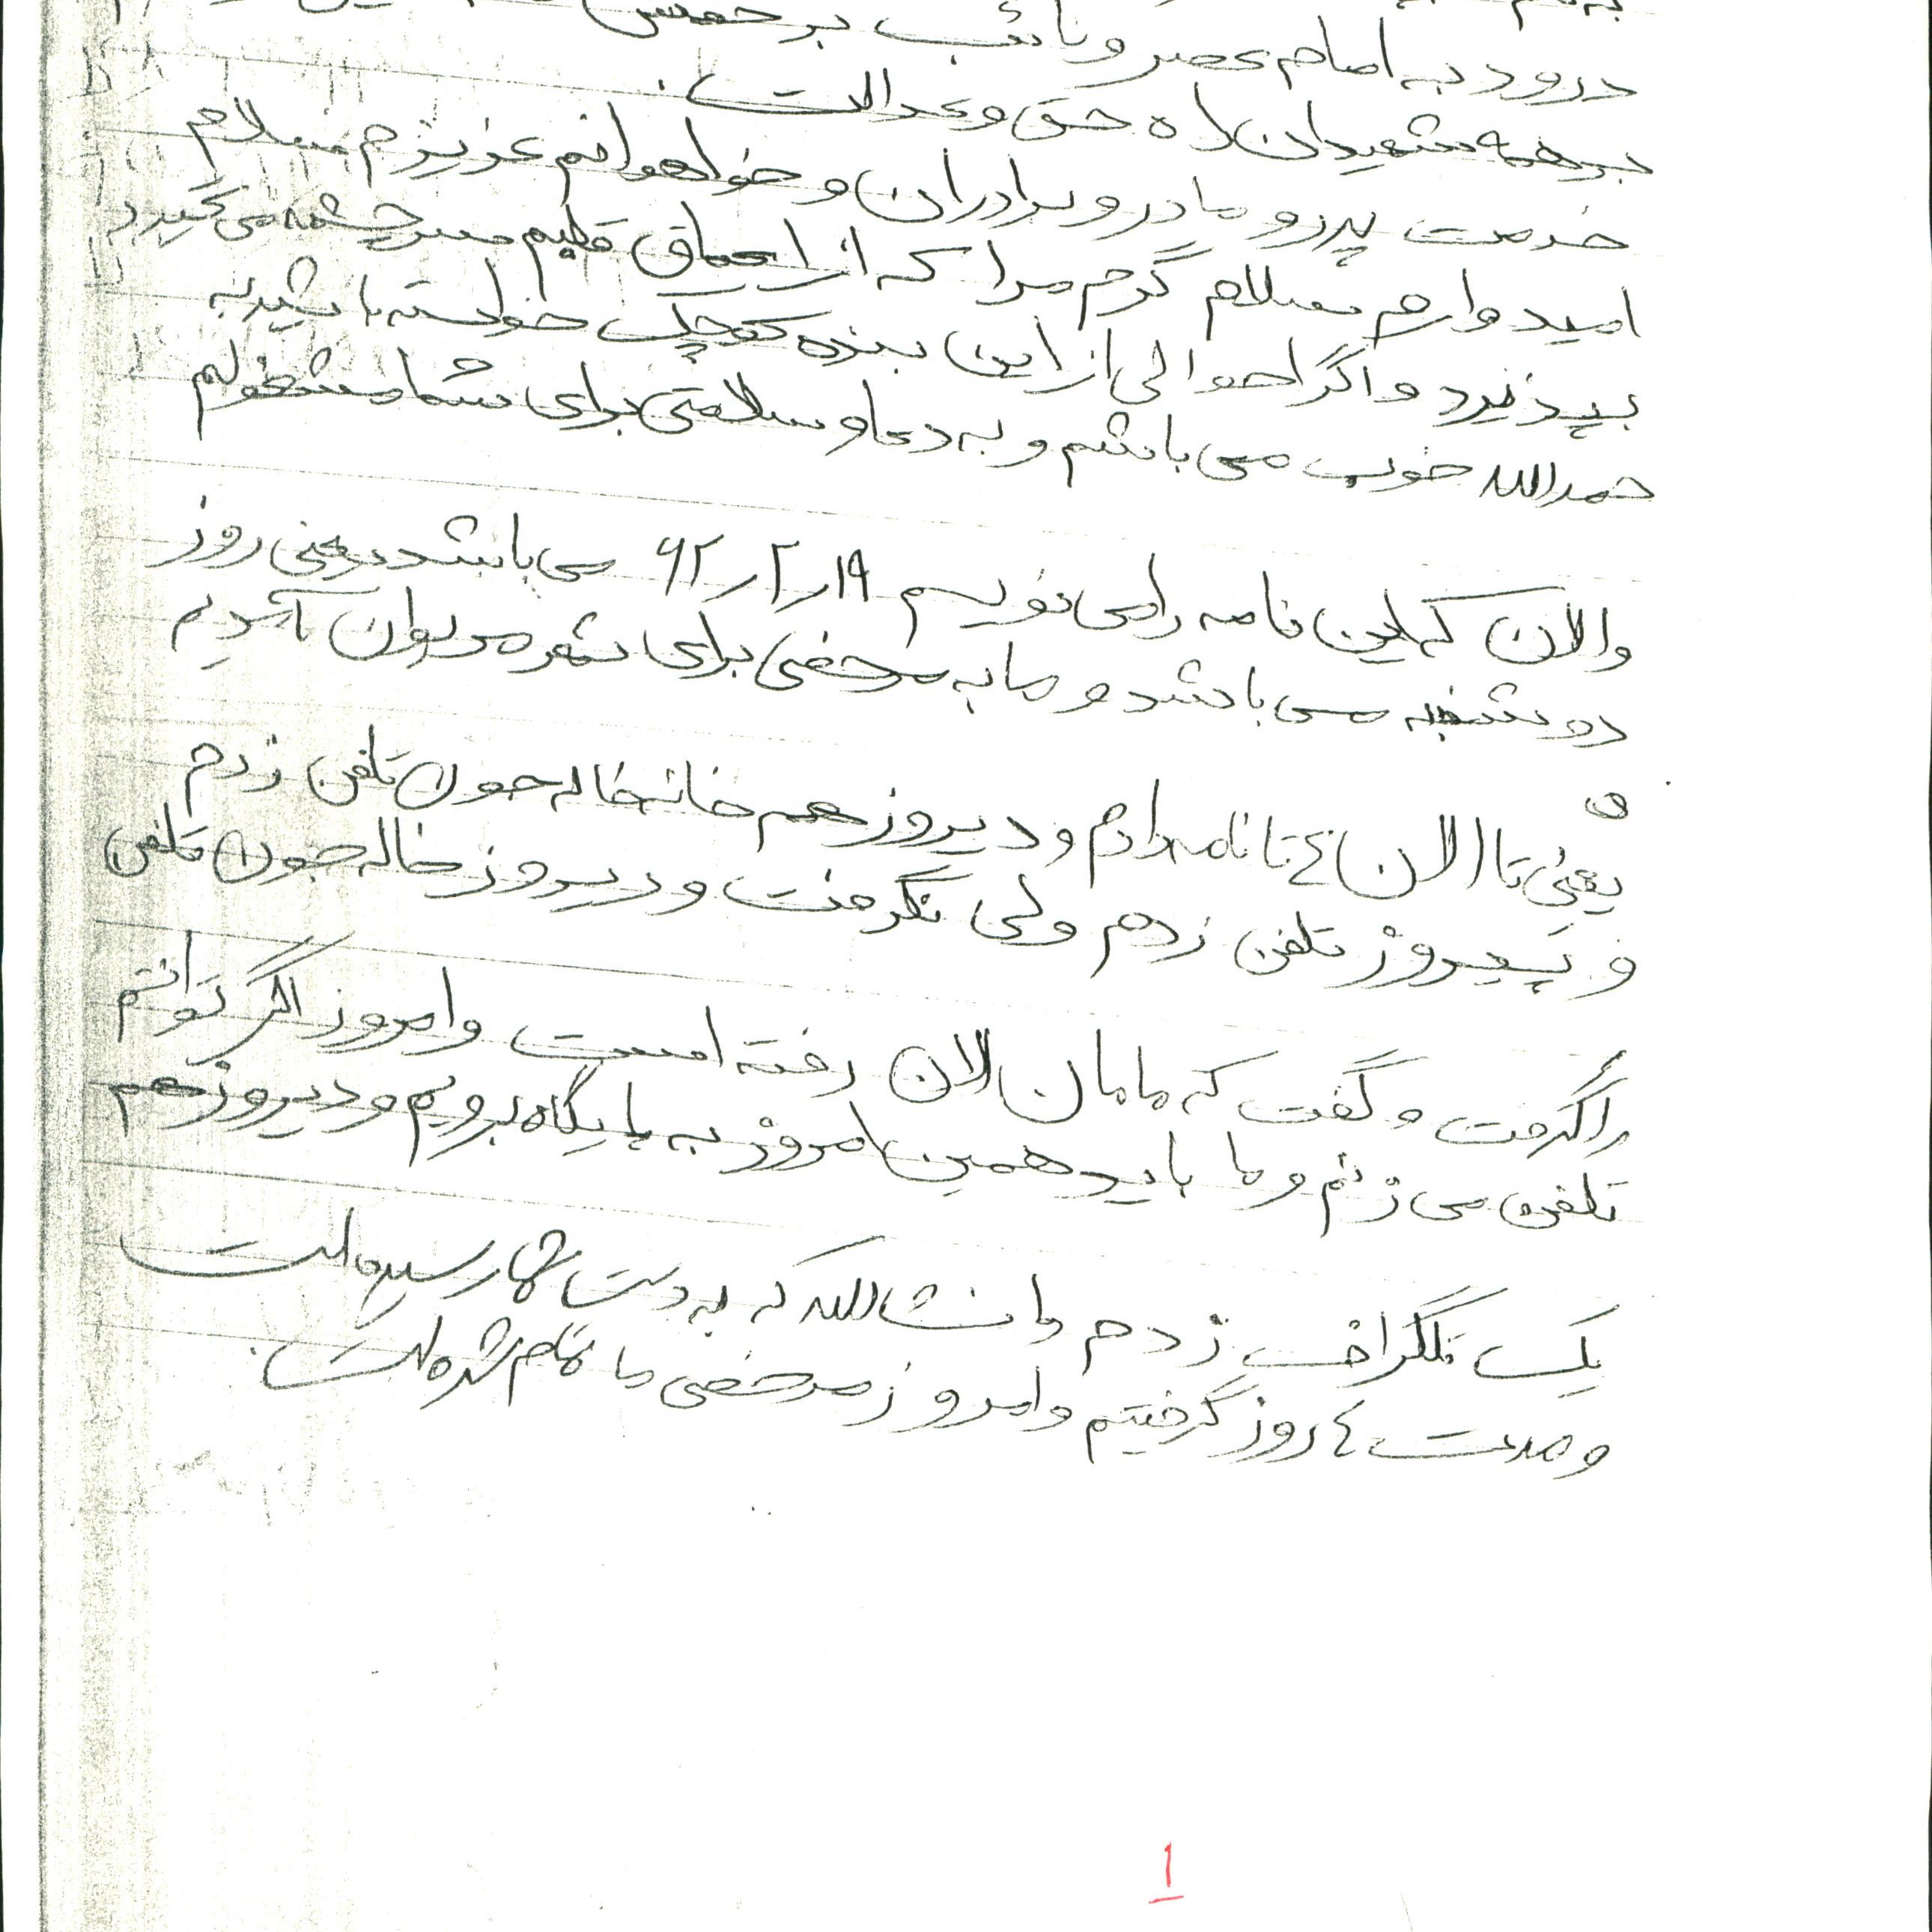 درود به امام عصر و نائب بر حقش
بر همه شهیدان راه حق و عدالت.
خدمت پدر و مادر و برادران و خواهرانم عزیزم سلام
امیدوارم سلام گرم مرا که از اعماق قلبم سرچشمه می گیرد
بپذیرد و اگر احوالی از این بنده کوچک خواسته باشید به
حمدالله خوب می باشم و به دعا و سلامتی برای شما مشغولم
والان که این نامه را می نویسم ۶۲/۲/۱۹ می باشد یعنی روز
دوشنبه می باشد و ما به مرخصی برای شهر مریوان آمدیم
و
یعنی تا الان ٤ تا نامه دادم و دیروز هم خانه خاله جون تلفن زدم
و پریروز تلفن زدم ولی نگرفت و دیروز خاله جون تلفن
را گرفت و گفت که مامان الان رفته است و امروز اگر توانستم
تلفن می زنم و ما باید همین امروز به پایگاه برویم و دیروز هم
یک تلگراف زدم وانشالله که به دست شما رسیده است
و مدت ٤ روز گرفتیم و امروز مرخصی ما تمام شده است.
۱